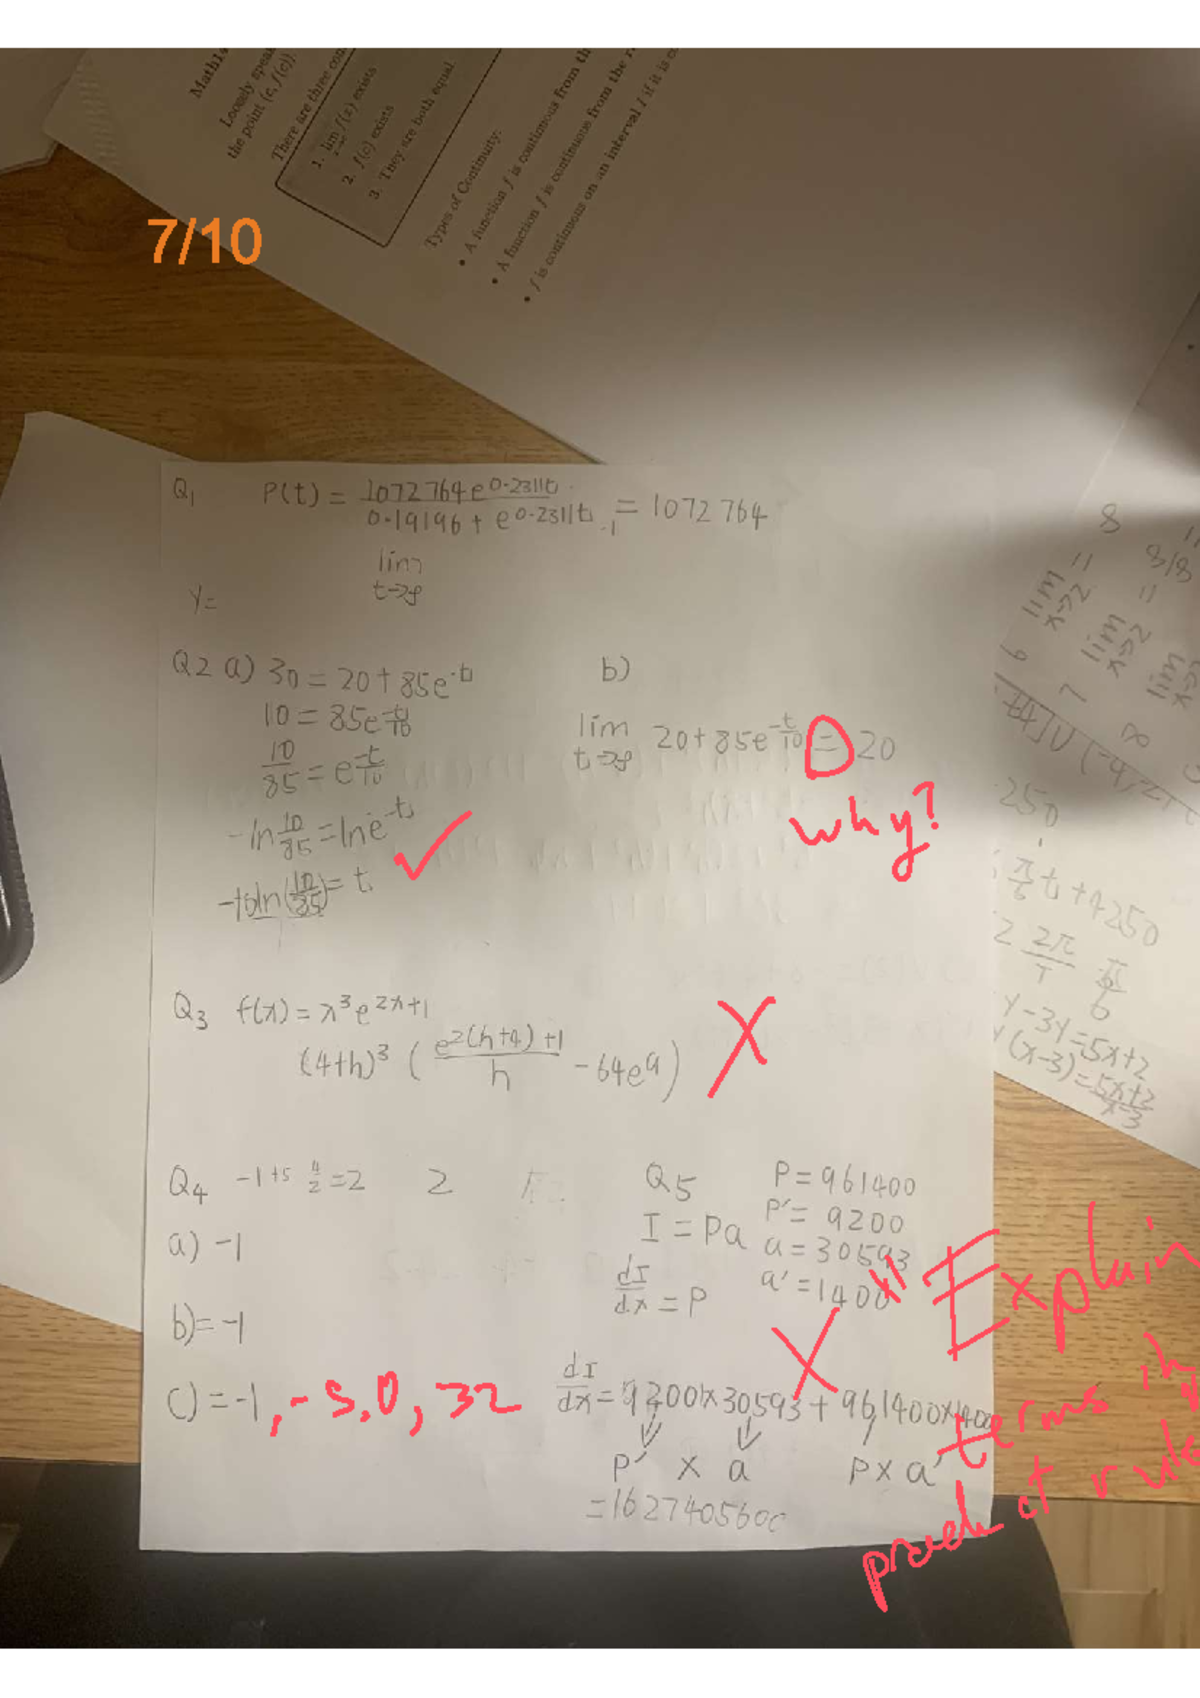 Math1
Loosely spea
the point (c, f(c))
There are three con
1. lim f(x) exists
2. f(c) exists
3. They are both equal
Types of Continuity:
• A function f is continuous from th
• A function f is continuous from the r
• f is continuous on an interval I if it is c
7/10
Q1 P(t) = 1072764e^0.2311t / 0.19196 + e^0.2311t = 1072764
lim
t→∞
Y=
Q2 a) 30 = 20 + 85e^-t
10 = 85e^-t/10
10/85 = e^-t/10
-ln 10/85 = lne^-t
-10ln(10/85) = t
b)
lim t→∞ 20 + 85e^-t/10 = 20
why?
Q3 f(x) = x³e^2x+1
(4+h)³ (e^2(h+4)+1 / h - 64e^9)
X
Q4 -1+5 4/2 = 2 2
a) -1
b) = -1
c) = -1, -5, 0, 32
Q5 P = 961400
I = Pa P' = 9200
a = 30593
dI/dx = P a' = 1400
X
dI/dx = 9200 x 30593 + 961400 x 1400
P' x a P x a'
= 1627405600
Explain
terms in
product rule
8
lim x→2 = 8/8
lim x→2 =
lim
250
π/6 t + 4250
2π
Y-3Y = 5x+2
(x-3) = 5x+2
x-3